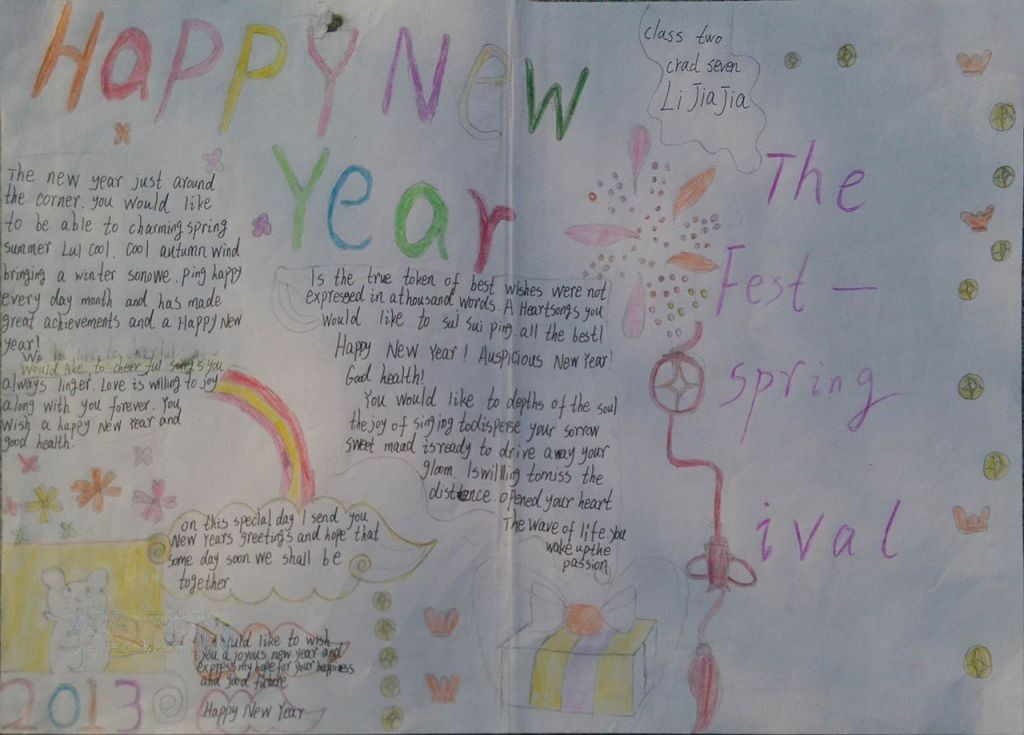 Happy New
Year
class two
crad seven
Li JiaJia
The new year just around
the corner. you would like
to be able to charming spring
summer Lul cool. Cool autumn wind
bringing a winter sonowe. ping happy
every day month and has made
great achievements and a Happy New
year!
would like to cheerful songs you
always linger. Love is willing to joy
along with you forever. You
wish a happy New Year and
good health.
Is the true token of best wishes were not
expresged in athousand words. A Heartsongs you
would like to sui sui ping all the best!
Happy New Year! Auspicious New Year!
Good health!
You would like to depths of the soul
the joy of singing todisperse your sorrow
sweet maad isready to drive away your
gloom. Iswillling tomiss the
distence. opened your heart
The wave of life. you
wake upthe
passion.
on this special day I send you
New years greetings and hope that
some day soon we shall be
together
would like to wish
you a joyous new year and
express my hope for your happiness
and good future
Happy New Year
2013
The
Fest —
spring
ival